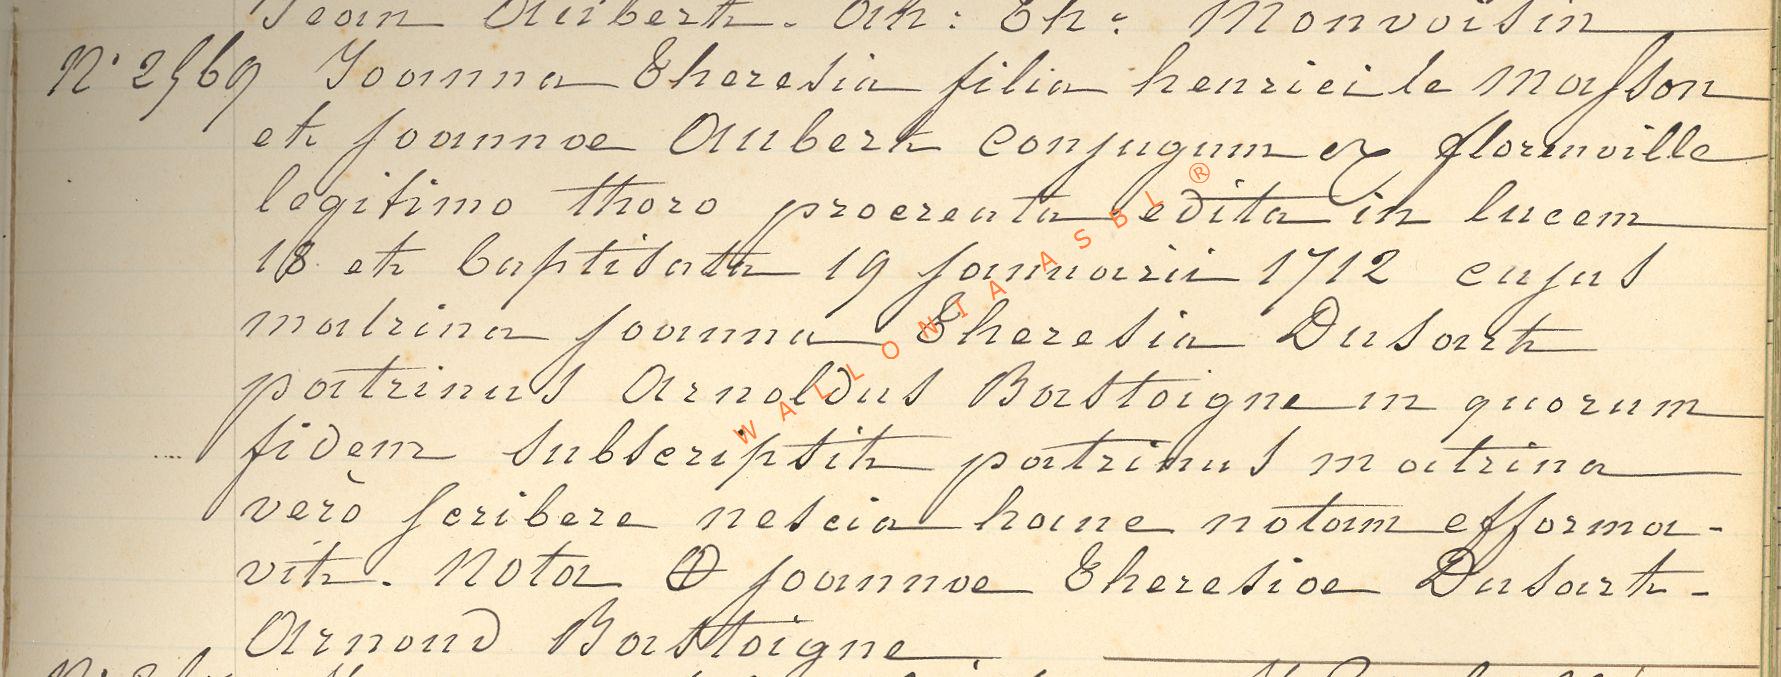 Jean Aubert. Ah: Th: Monvoisin
N° 2569 Joanna Theresia filia henrici le Masson
et joannae Aubert conjugum ex florenville
legitimo thoro procreata edita in lucem
18 et baptisata 19 januarii 1712 cujus
matrina joanna Theresia Dusart
patrinus Arnoldus Bastoigne in quorum
fidem subscripsit patrinus matrina
verò scribere nescia hanc notam efforma-
vit. Nota joannae Theresiae Dusart -
Arnoud Bastoigne
WALLONIA ASBL ®